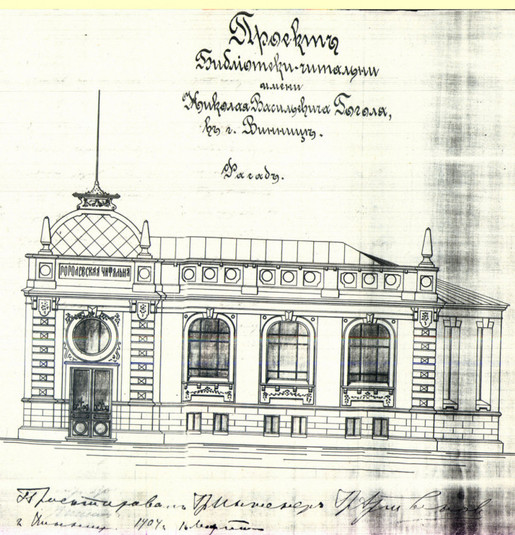 Проектъ
Библіотеки-читальни
имени
Николая Васильевича Гоголя,
въ г. Винницѣ.
Фасадъ.
ГОГОЛЕВСКАЯ ЧИТАЛЬНЯ
Проектировалъ Инженеръ
г. Винница. 1904